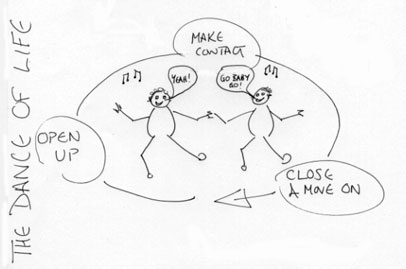 THE DANCE OF LIFE
MAKE
CONTACT
YEAH!
GO BABY
GO!
OPEN
UP
CLOSE
& MOVE ON